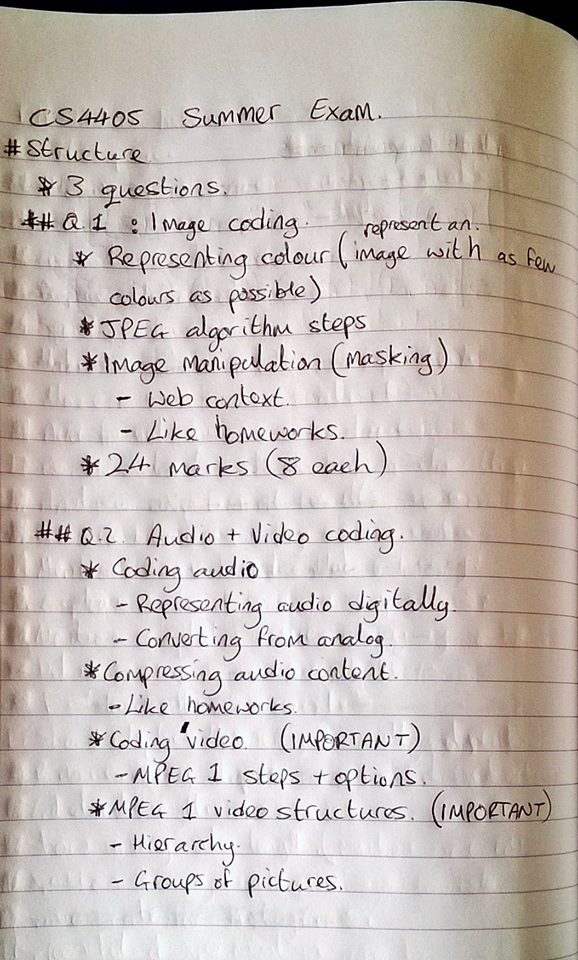 CS4405 Summer Exam.
# Structure
* 3 questions.
## Q.1 : Image coding.
* Representing colour (represent an image with as few
colours as possible)
* JPEG algorithm steps
* Image manipulation (masking)
- Web context.
- Like homeworks.
* 24 marks (8 each)
## Q.2. Audio + Video coding.
* Coding audio
- Representing audio digitally.
- Converting from analog.
* Compressing audio content.
- Like homeworks.
* Coding video. (IMPORTANT)
- MPEG 1 steps + options.
* MPEG 1 video structures. (IMPORTANT)
- Hierarchy.
- Groups of pictures.